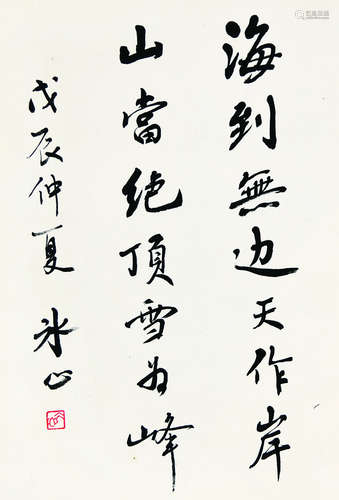 海到無边天作岸
山當绝頂雪为峰
戊辰仲夏 冰心